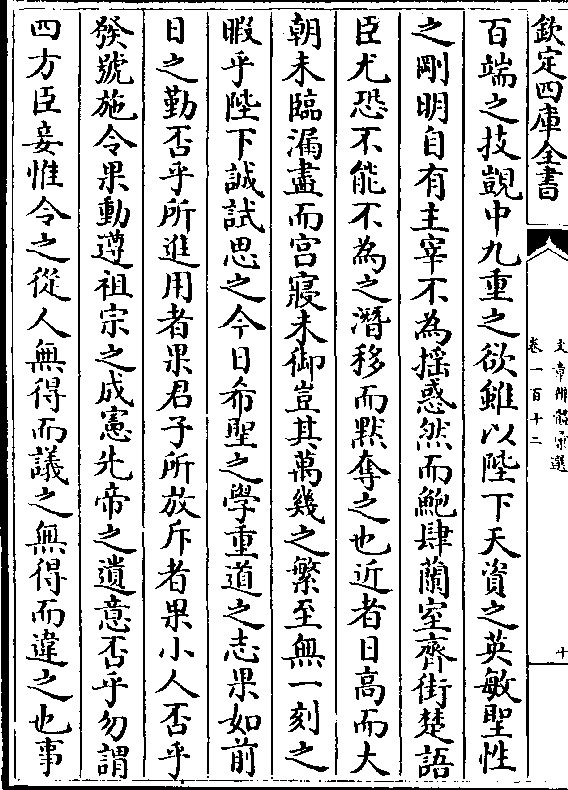 欽定四庫全書
文章辨體彙選
卷一百十二
十
百端之技覬中九重之欲雖以陛下天資之英敏聖性
之剛明自有主宰不為揺惑然而鮑肆蘭室齊街楚語
臣尤恐不能不為之潛移而黙奪之也近者日高而大
朝未臨漏盡而宫寢未御豈其萬幾之繁至無一刻之
暇乎陛下誠試思之今日希聖之學重道之志果如前
日之勤否乎所進用者果君子所放斥者果小人否乎
發號施令果動遵祖宗之成憲先帝之遺意否乎勿謂
四方臣妾惟令之從人無得而議之無得而違之也事